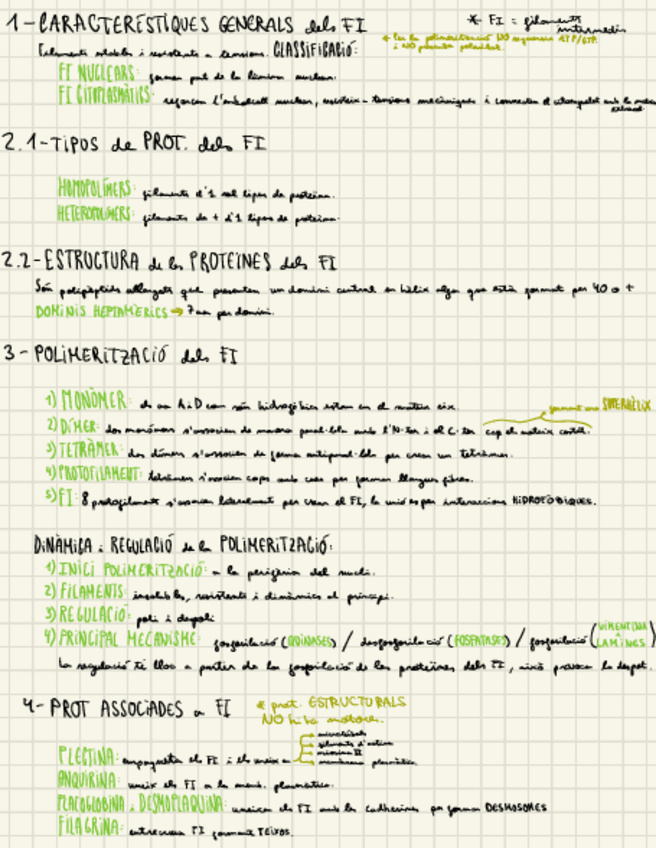 1-CARACTERÍSTIQUES GENERALS dels FI
* FI = filaments intermedis
* Per la polimerització NO requereix ATP/GTP i NO presenta polaritat.
Filaments estables i resistents a tensions. CLASSIFICACIÓ:
FI NUCLEARS: formen part de la làmina nuclear.
FI CITOPLASMÀTICS: reforcen l'embolcall nuclear, tensions mecàniques i connecten el citoesquelet amb la matriu extracel.
2.1-TIPOS de PROT. dels FI
HOMOPOLÍMERS: filaments d'1 sol tipus de proteïna.
HETEROPOLÍMERS: filaments de + d'1 tipus de proteïna.
2.2-ESTRUCTURA de les PROTEÏNES dels FI
Són polipèptids allargats que presenten un domini central en hèlix alfa que està format per 40 o +
DOMINIS HEPTAMÈRICS → 7 aa per domini.
3-POLIMERITZACIÓ dels FI
1) MONÒMER: els aa A i D son hidrofòbics estan en el mateix eix.
formant una SUPERHÈLIX
2) DÍMER: dos monòmers s'associen de manera paral·lela amb l'N-ter i el C-ter cap al mateix costat.
3) TETRÀMER: dos dímers s'associen de forma antiparal·lela per crear un tetràmer.
4) PROTOFILAMENT: tetràmers s'uneixen caps amb cues per formar llargues fibres.
5) FI: 8 protofilaments s'associen lateralment per crear el FI, la unió es per interaccions HIDROFÒBIQUES.
DINÀMICA i REGULACIÓ de la POLIMERITZACIÓ:
1) INICI POLIMERITZACIÓ: a la perifèria del nucli.
2) FILAMENTS: insolubles, resistents i dinàmics al principi.
3) REGULACIÓ: poli i despoli
4) PRINCIPAL MECANISME: fosforilació (QUINASES) / desfosforilació (FOSFATASES) / fosforilació (VIMENTINA LAMINES)
La regulació té lloc a partir de la fosforilació de les proteïnes dels FI, això provoca la despol.
4-PROT ASSOCIADES a FI
* prot. ESTRUCTURALS
NO hi ha motores.
PLECTINA: empaqueta els FI i els uneix a
microtúbuls
filaments d'actina
miosina II
membrana plasmàtica
ANQUIRINA: uneix els FI a la memb. plasmàtica.
PLACOGLOBINA i DESMOPLAQUINA: uneixen els FI amb les cadherines per formar DESMOSOMES
FILAGRINA: entrecreua FI formant TEIXOS.